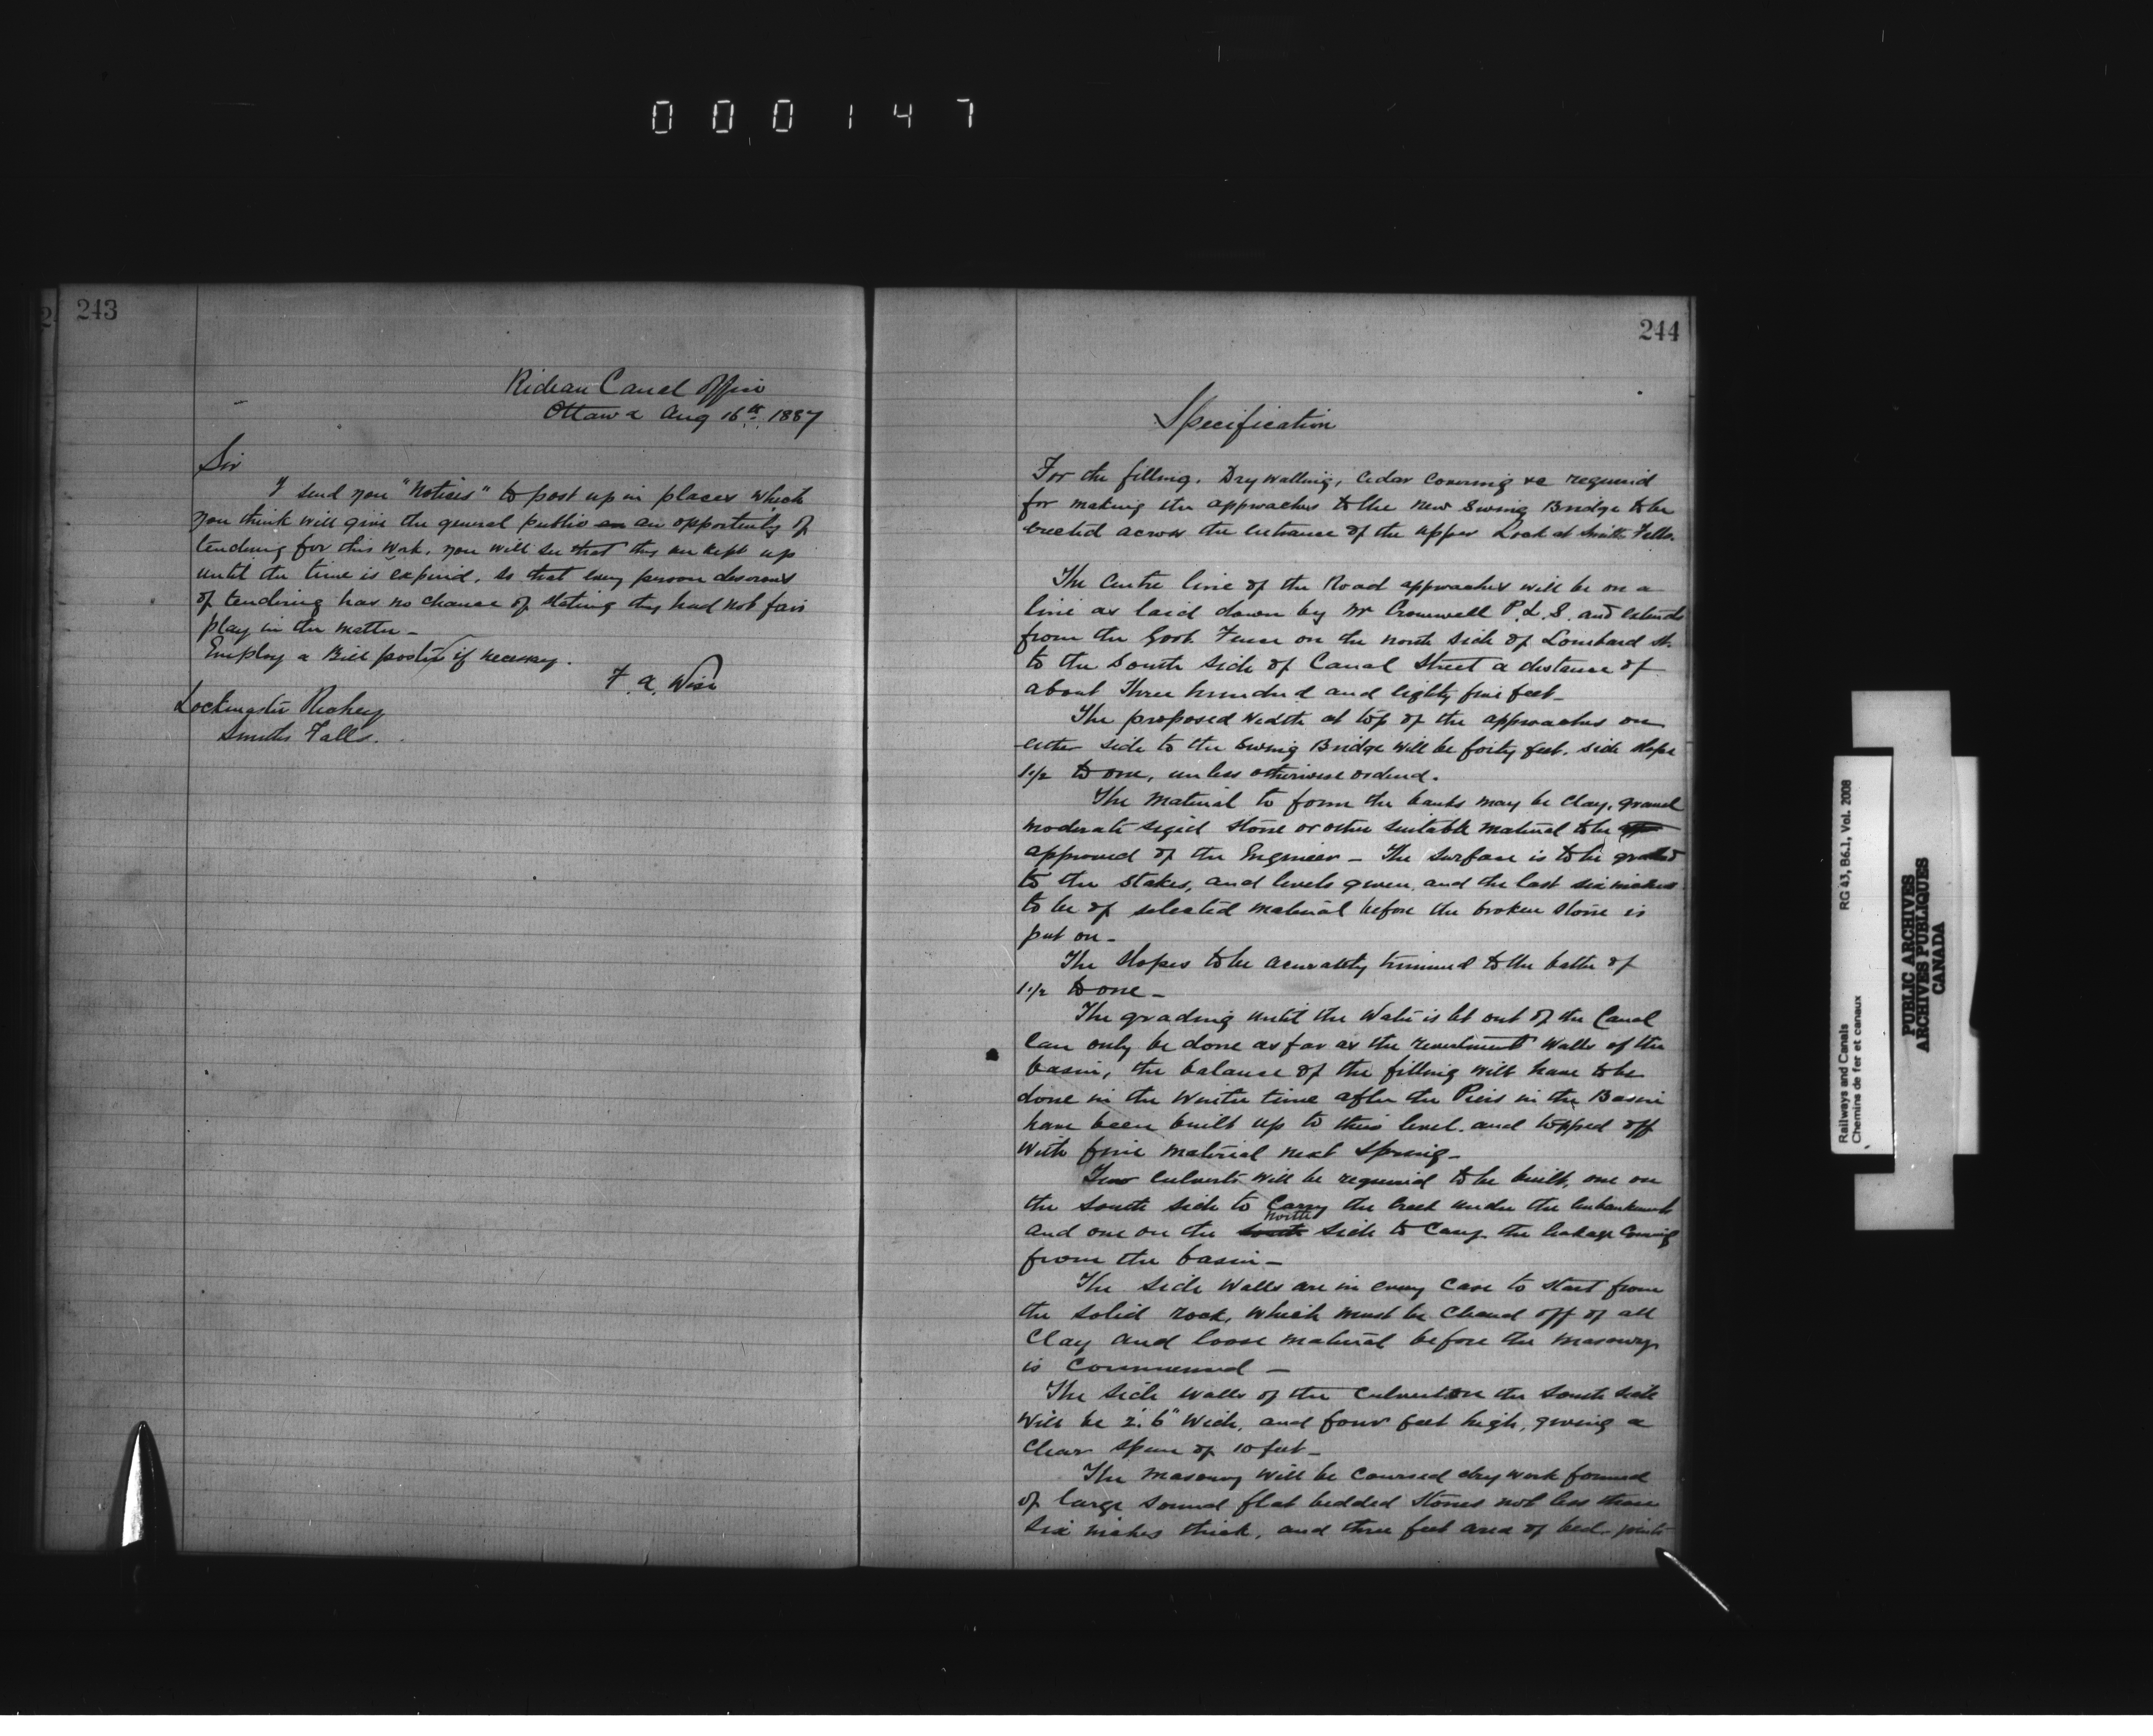 0 0 0 1 4 7
243
Rideau Canal Office
Ottawa Aug 16th 1887
Sir
I send you "Notices" to post up in places which
you think will give the general public an an opportunity of
tendering for this work. you will see that they are kept up
until the time is expired, so that every person desirous
of tendering has no chance of stating they had not fair
play in the matter -
Employ a Bill poster if necessary.
F. A. Wise
Lockmaster Richey
Smiths Falls.
244
Specification
For the filling. Dry walling, Cedar Covering &c required
for making the approaches to the new Swing Bridge to be
erected across the entrance of the upper Lock at Smiths Falls.
The Centre line of the Road approaches will be on a
line as laid down by Mr Cromwell P.L.S. and extends
from the Foot Fence on the north side of Lombard st.
to the South side of Canal Street a distance of
about Three hundred and eighty five feet -
The proposed width at top of the approaches on
either side to the Swing Bridge will be forty feet. side slopes
1 1/2 to one, unless otherwise ordered.
The material to form the banks may be clay, gravel
moderate sized stone or other suitable material to be
approved of the Engineer - The surface is to be graded
to the stakes, and levels given, and the last six inches
to be of selected material before the broken stone is
put on -
The slopes to be accurately trimmed to the batter of
1 1/2 to one -
The grading until the Water is let out of the Canal
can only be done as far as the revetment walls of the
basin, the balance of the filling will have to be
done in the Winter time after the Piers in the Basin
have been built up to their level. and topped off
with fine material next Spring -
Two Culverts will be required to be built, one on
the South side to Carry the Creek under the embankment
and one on the south north side to Carry the leakage Coming
from the basin -
The side walls are in every Case to start from
the solid rock, which must be cleaned off of all
Clay and loose material before the masonry
is Commenced -
The side walls of the Culvert on the South side
will be 2'.6" wide, and four feet high, giving a
clear span of 10 feet -
The Masonry will be Coursed dry work formed
of large sound flat bedded stones not less than
six inches thick, and three feet area of bed - joints
Railways and Canals
Chemins de fer et canaux
RG 43, B6.1, Vol. 2008
PUBLIC ARCHIVES
ARCHIVES PUBLIQUES
CANADA